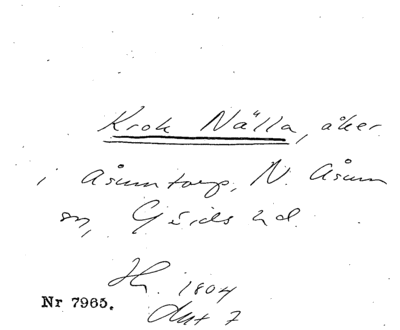 Krok Nälla, åker
i Åsumtorp, N. Åsum
sn, Gärds hd.
Hr. 1804
Akt 7
Nr 7965.